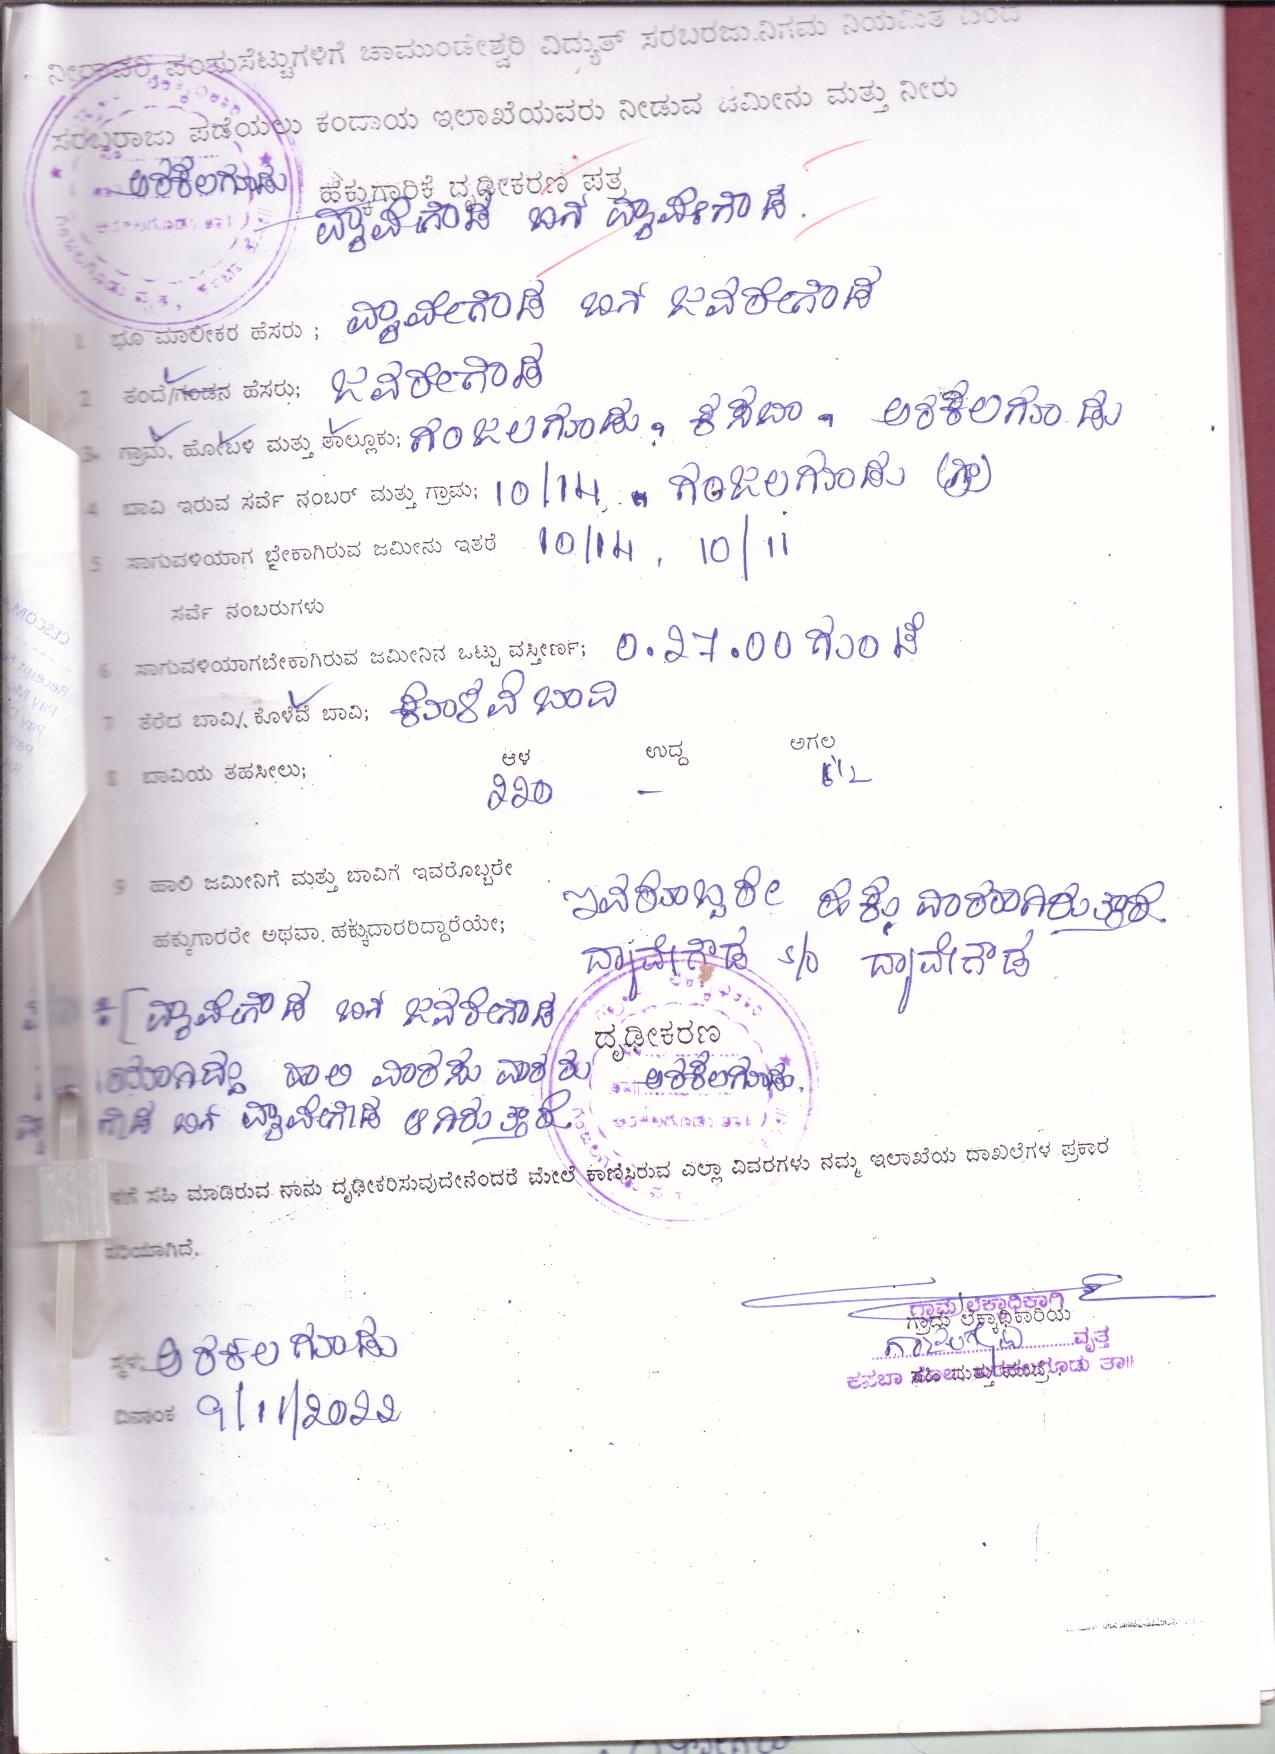 ನೀರಾವರಿ ಪಂಪುಸೆಟ್ಟುಗಳಿಗೆ ಚಾಮುಂಡೇಶ್ವರಿ ವಿದ್ಯುತ್ ಸರಬರಜು.ನಿಗಮ ನಿಯಮಿತ ವಿಂದ
ಸರಬ್ಬರಾಜು ಪಡೆಯಲು ಕಂದಾಯ ಇಲಾಖೆಯವರು ನೀಡುವ ಜಮೀನು ಮತ್ತು ನೀರು
ಅರಕಲಗೂಡು ಹಕ್ಕುಗಾರಿಕೆ ದೃಢೀಕರಣ ಪತ್ರ
ದ್ಯಾವೇಗೌಡ ಬಿನ್ ದ್ಯಾವೇಗೌಡ.
1 ಭೂ ಮಾಲೀಕರ ಹೆಸರು ; ದ್ಯಾವೇಗೌಡ ಬಿನ್ ಜವರೇಗೌಡ
2 ತಂದೆ/ಗಂಡನ ಹೆಸರು; ಜವರೇಗೌಡ
3 ಗ್ರಾಮ, ಹೋಬಳಿ ಮತ್ತು ತಾಲ್ಲೂಕು; ಗಂಜಲಗೂಡು, ಕಸಬಾ, ಅರಕಲಗೂಡು
4 ಬಾವಿ ಇರುವ ಸರ್ವೆ ನಂಬರ್ ಮತ್ತು ಗ್ರಾಮ; 10/14, ಗಂಜಲಗೂಡು (ಗ್ರಾ)
5 ಸಾಗುವಳಿಯಾಗ ಬೇಕಾಗಿರುವ ಜಮೀನು ಇತರೆ 10/14, 10/11
ಸರ್ವೆ ನಂಬರುಗಳು
6 ಸಾಗುವಳಿಯಾಗಬೇಕಾಗಿರುವ ಜಮೀನಿನ ಒಟ್ಟು ವಸ್ತೀರ್ಣ; 0.27.00 ಗುಂಟೆ
7 ತೆರೆದ ಬಾವಿ/ ಕೊಳವೆ ಬಾವಿ; ಕೊಳವೆ ಬಾವಿ
8 ಬಾವಿಯ ತಹಸೀಲು; ಆಳ ಉದ್ದ ಅಗಲ
220 –
9 ಹಾಲಿ ಜಮೀನಿಗೆ ಮತ್ತು ಬಾವಿಗೆ ಇವರೊಬ್ಬರೇ
ಇವರೊಬ್ಬರೇ ಹಕ್ಕುದಾರರಾಗಿರುತ್ತಾರೆ.
ಹಕ್ಕುಗಾರರೇ ಅಥವಾ ಹಕ್ಕುದಾರರಿದ್ದಾರೆಯೇ;
ದ್ಯಾವೇಗೌಡ s/o ದ್ಯಾವೇಗೌಡ
ದ್ಯಾವೇಗೌಡ ಬಿನ್ ಜವರೇಗೌಡ
ದೃಢೀಕರಣ
ಹಾಲಿ ವಾರಸುದಾರರು ಅರಕಲಗೂಡು.
ಗೌಡ ಬಿನ್ ದ್ಯಾವೇಗೌಡ ಆಗಿರುತ್ತಾರೆ.
ಸಹಿ ಮಾಡಿರುವ ನಾನು ದೃಢೀಕರಿಸುವುದೇನೆಂದರೆ ಮೇಲೆ ಕಾಣಿಸಿರುವ ಎಲ್ಲಾ ವಿವರಗಳು ನಮ್ಮ ಇಲಾಖೆಯ ದಾಖಲೆಗಳ ಪ್ರಕಾರ
ಸರಿಯಾಗಿದೆ.
ಗ್ರಾಮ ಲೆಕ್ಕಾಧಿಕಾರಿ
ಗ್ರಾಮ ಲೆಕ್ಕಾಧಿಕಾರಿಯ
ವೃತ್ತ
ಸ್ಥಳ: ಅರಕಲಗೂಡು
ಕಸಬಾ ಸಹಿ ಮತ್ತು ಮೊಹರು
ದಿನಾಂಕ 9/11/2022